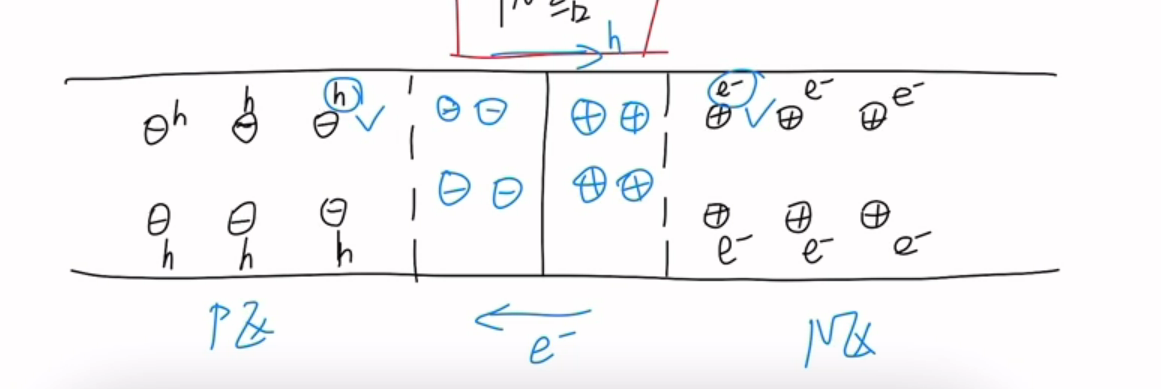 h
h h h e⁻ e⁻ e⁻
⊖ ⊖ ⊖ ⊖ ⊖ ⊕ ⊕ ⊕ ⊕ ⊕
⊖ ⊖ ⊖ ⊖ ⊖ ⊕ ⊕ ⊕ ⊕ ⊕
h h h e⁻ e⁻ e⁻
P区 e⁻ N区